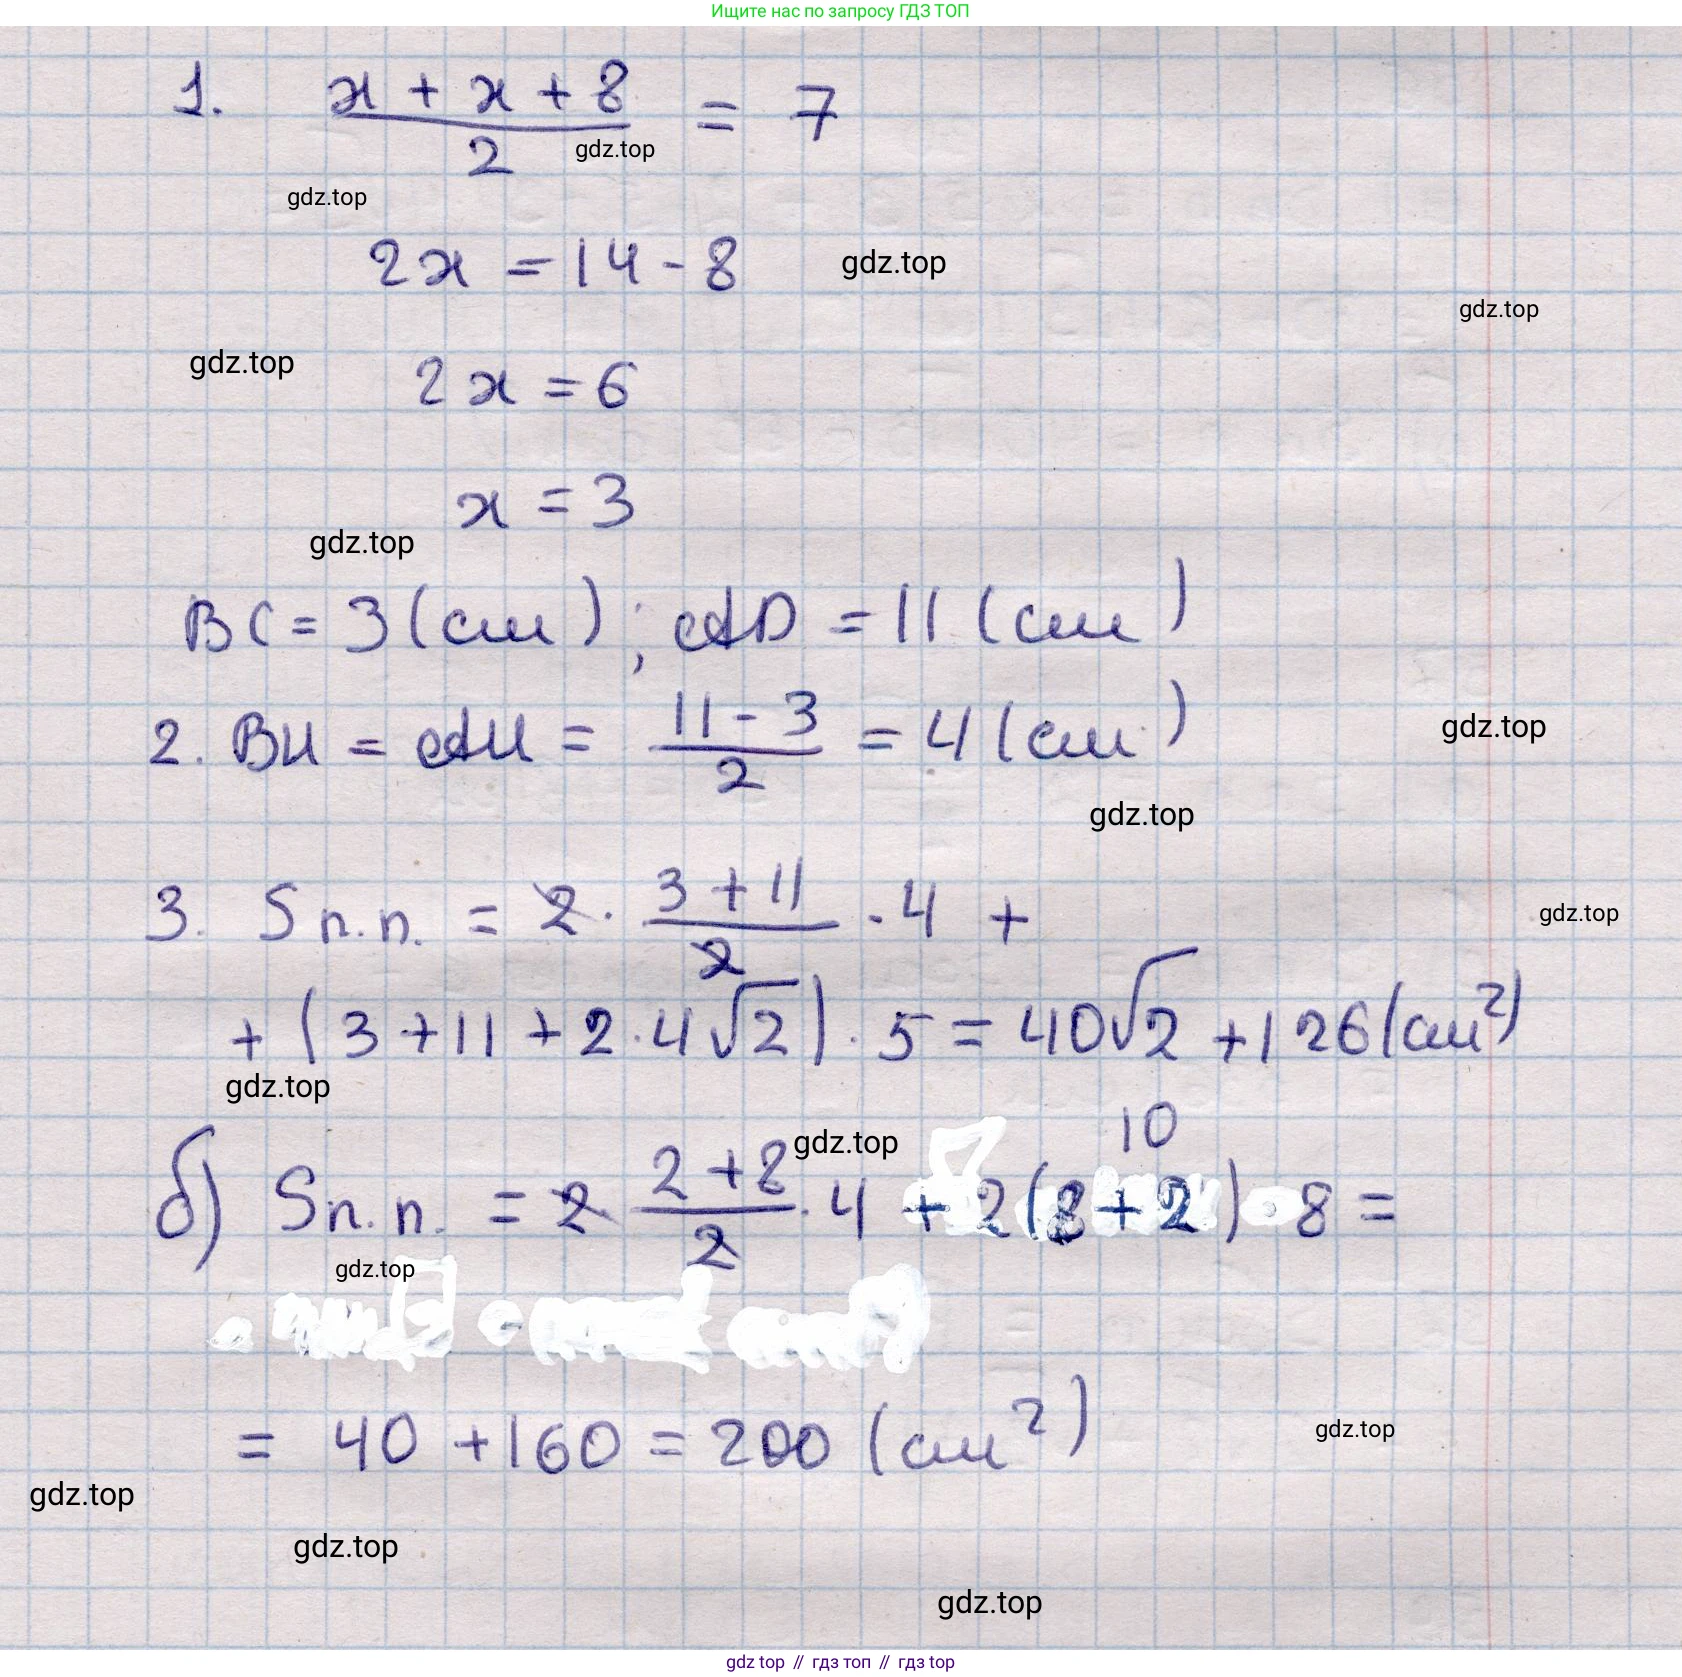 Ищите нас по запросу ГДЗ ТОП
1. (x + x + 8)/2 = 7
gdz.top
gdz.top
2x = 14 - 8
gdz.top
gdz.top
gdz.top
2x = 6
x = 3
gdz.top
BC = 3 (см); AD = 11 (см)
2. BH = AH = (11 - 3)/2 = 4 (см)
gdz.top
gdz.top
3. Sп.п. = 2 · (3 + 11)/2 · 4 +
gdz.top
+ (3 + 11 + 2 · 4√2) · 5 = 40√2 + 126 (см²)
gdz.top
10
gdz.top
б) Sп.п. = 2 · (2 + 8)/2 · 4 + 2(8 + 2) · 8 =
gdz.top
= 40 + 160 = 200 (см²)
gdz.top
gdz.top
gdz.top
gdz.top
gdz top // гдз топ // гдз top